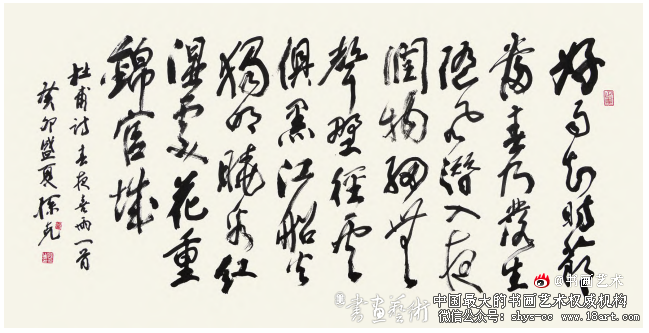 好雨知時節
當春乃發生
隨風潛入夜
潤物細無
聲野徑雲
俱黑江船火
獨明曉看紅
濕處花重
錦官城
杜甫詩春夜喜雨一首
癸卯盛夏
@书画艺术
書畫藝術
中国最大的书画艺术权威机构
微信公众号：shys-cc www.18art.com